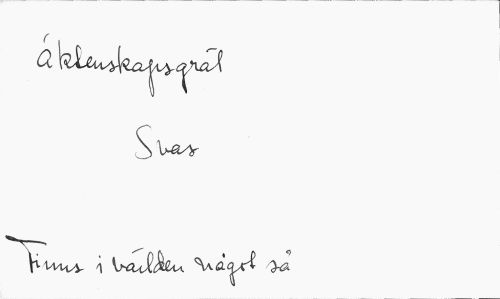 Äktenskapsgräl
Svar
Finns i världen något så